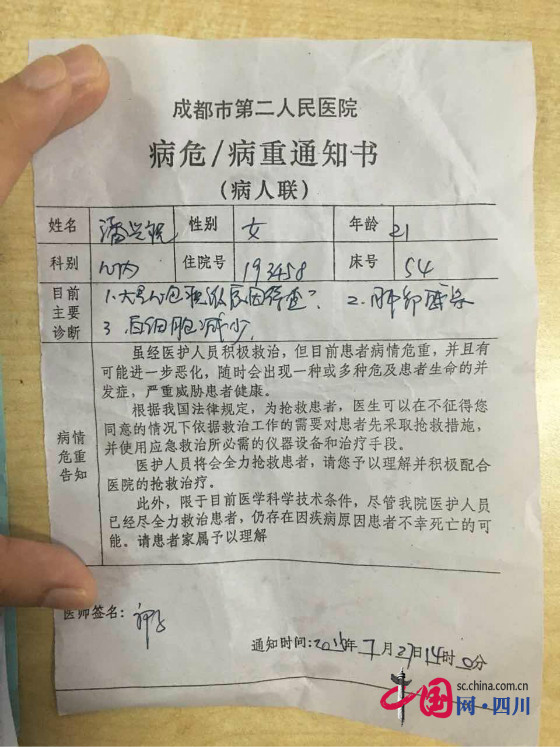 成都市第二人民医院
病危/病重通知书
(病人联)
姓名 性别 女 年龄 21
科别 心内 住院号 193458 床号 54
目前主要诊断 1.大量心包积液原因待查? 2.肺部感染
3.白细胞减少
病情危重告知
虽经医护人员积极救治，但目前患者病情危重，并且有
可能进一步恶化，随时会出现一种或多种危及患者生命的并
发症，严重威胁患者健康。
根据我国法律规定，为抢救患者，医生可以在不征得您
同意的情况下依据救治工作的需要对患者先采取抢救措施，
并使用应急救治所必需的仪器设备和治疗手段。
医护人员将会全力抢救患者，请您予以理解并积极配合
医院的抢救治疗。
此外，限于目前医学科学技术条件，尽管我院医护人员
已经尽全力救治患者，仍存在因疾病原因患者不幸死亡的可
能。请患者家属予以理解
医师签名：
通知时间：2016年7月27日14时30分
sc.china.com.cn
中国网·四川